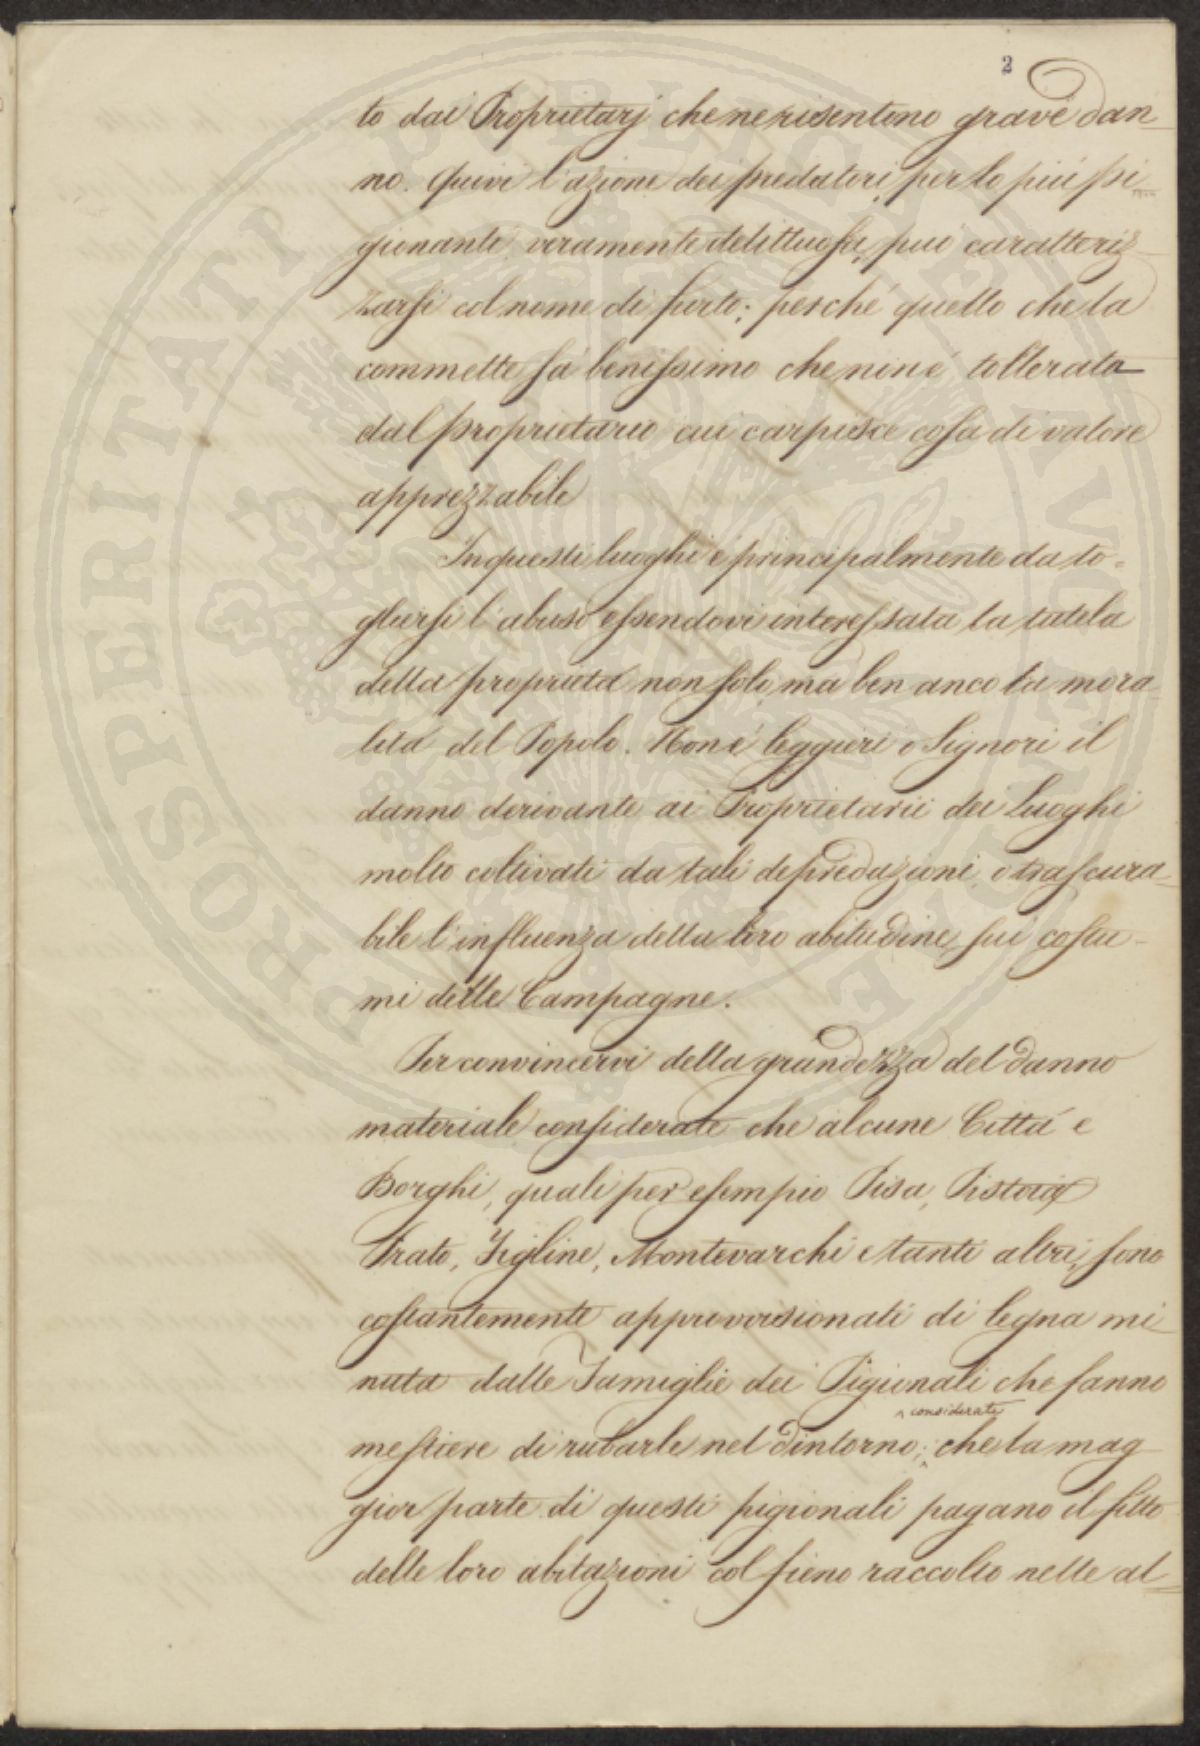 2
to dai Proprietarj che ne risentono grave dan-
no. Quivi l'azione dei predatori, per lo più pi-
gionanti, veramente delittuosa, può caratteriz-
zarsi col nome di furto; perché quello che la
commette sa benissimo che nin é tollerata
dal proprietario cui carpisce cosa di valore
apprezzabile
In questi luoghi é principalmente da to-
gliersi l'abuso essendovi interessata la tutela
della proprietá non solo, ma ben anco la mora-
litá del Popolo. Non é leggieri o Signori il
danno derivante ai Proprietarii dei Luoghi
molto coltivati da tali depredazioni, o trascura-
bile l'influenza della loro abitudine sui costu-
mi delle Campagne.
Per convincervi della grandezza del danno
materiale considerate che alcune Cittá e
Borghi, quali per esempio Pisa, Pistoia
Prato, Figline, Montevarchi e tanti altri, sono
costantemente approvvisionati di legna mi-
nuta dalle Famiglie dei Pigionali che fanno
considerate
mestiere di rubarle nel dintorno; che la mag-
gior parte di questi pigionali pagano il fitto
delle loro abitazioni col fieno raccolto nelle al-
PROSPERITATI PUBLICAE AUGENDAE